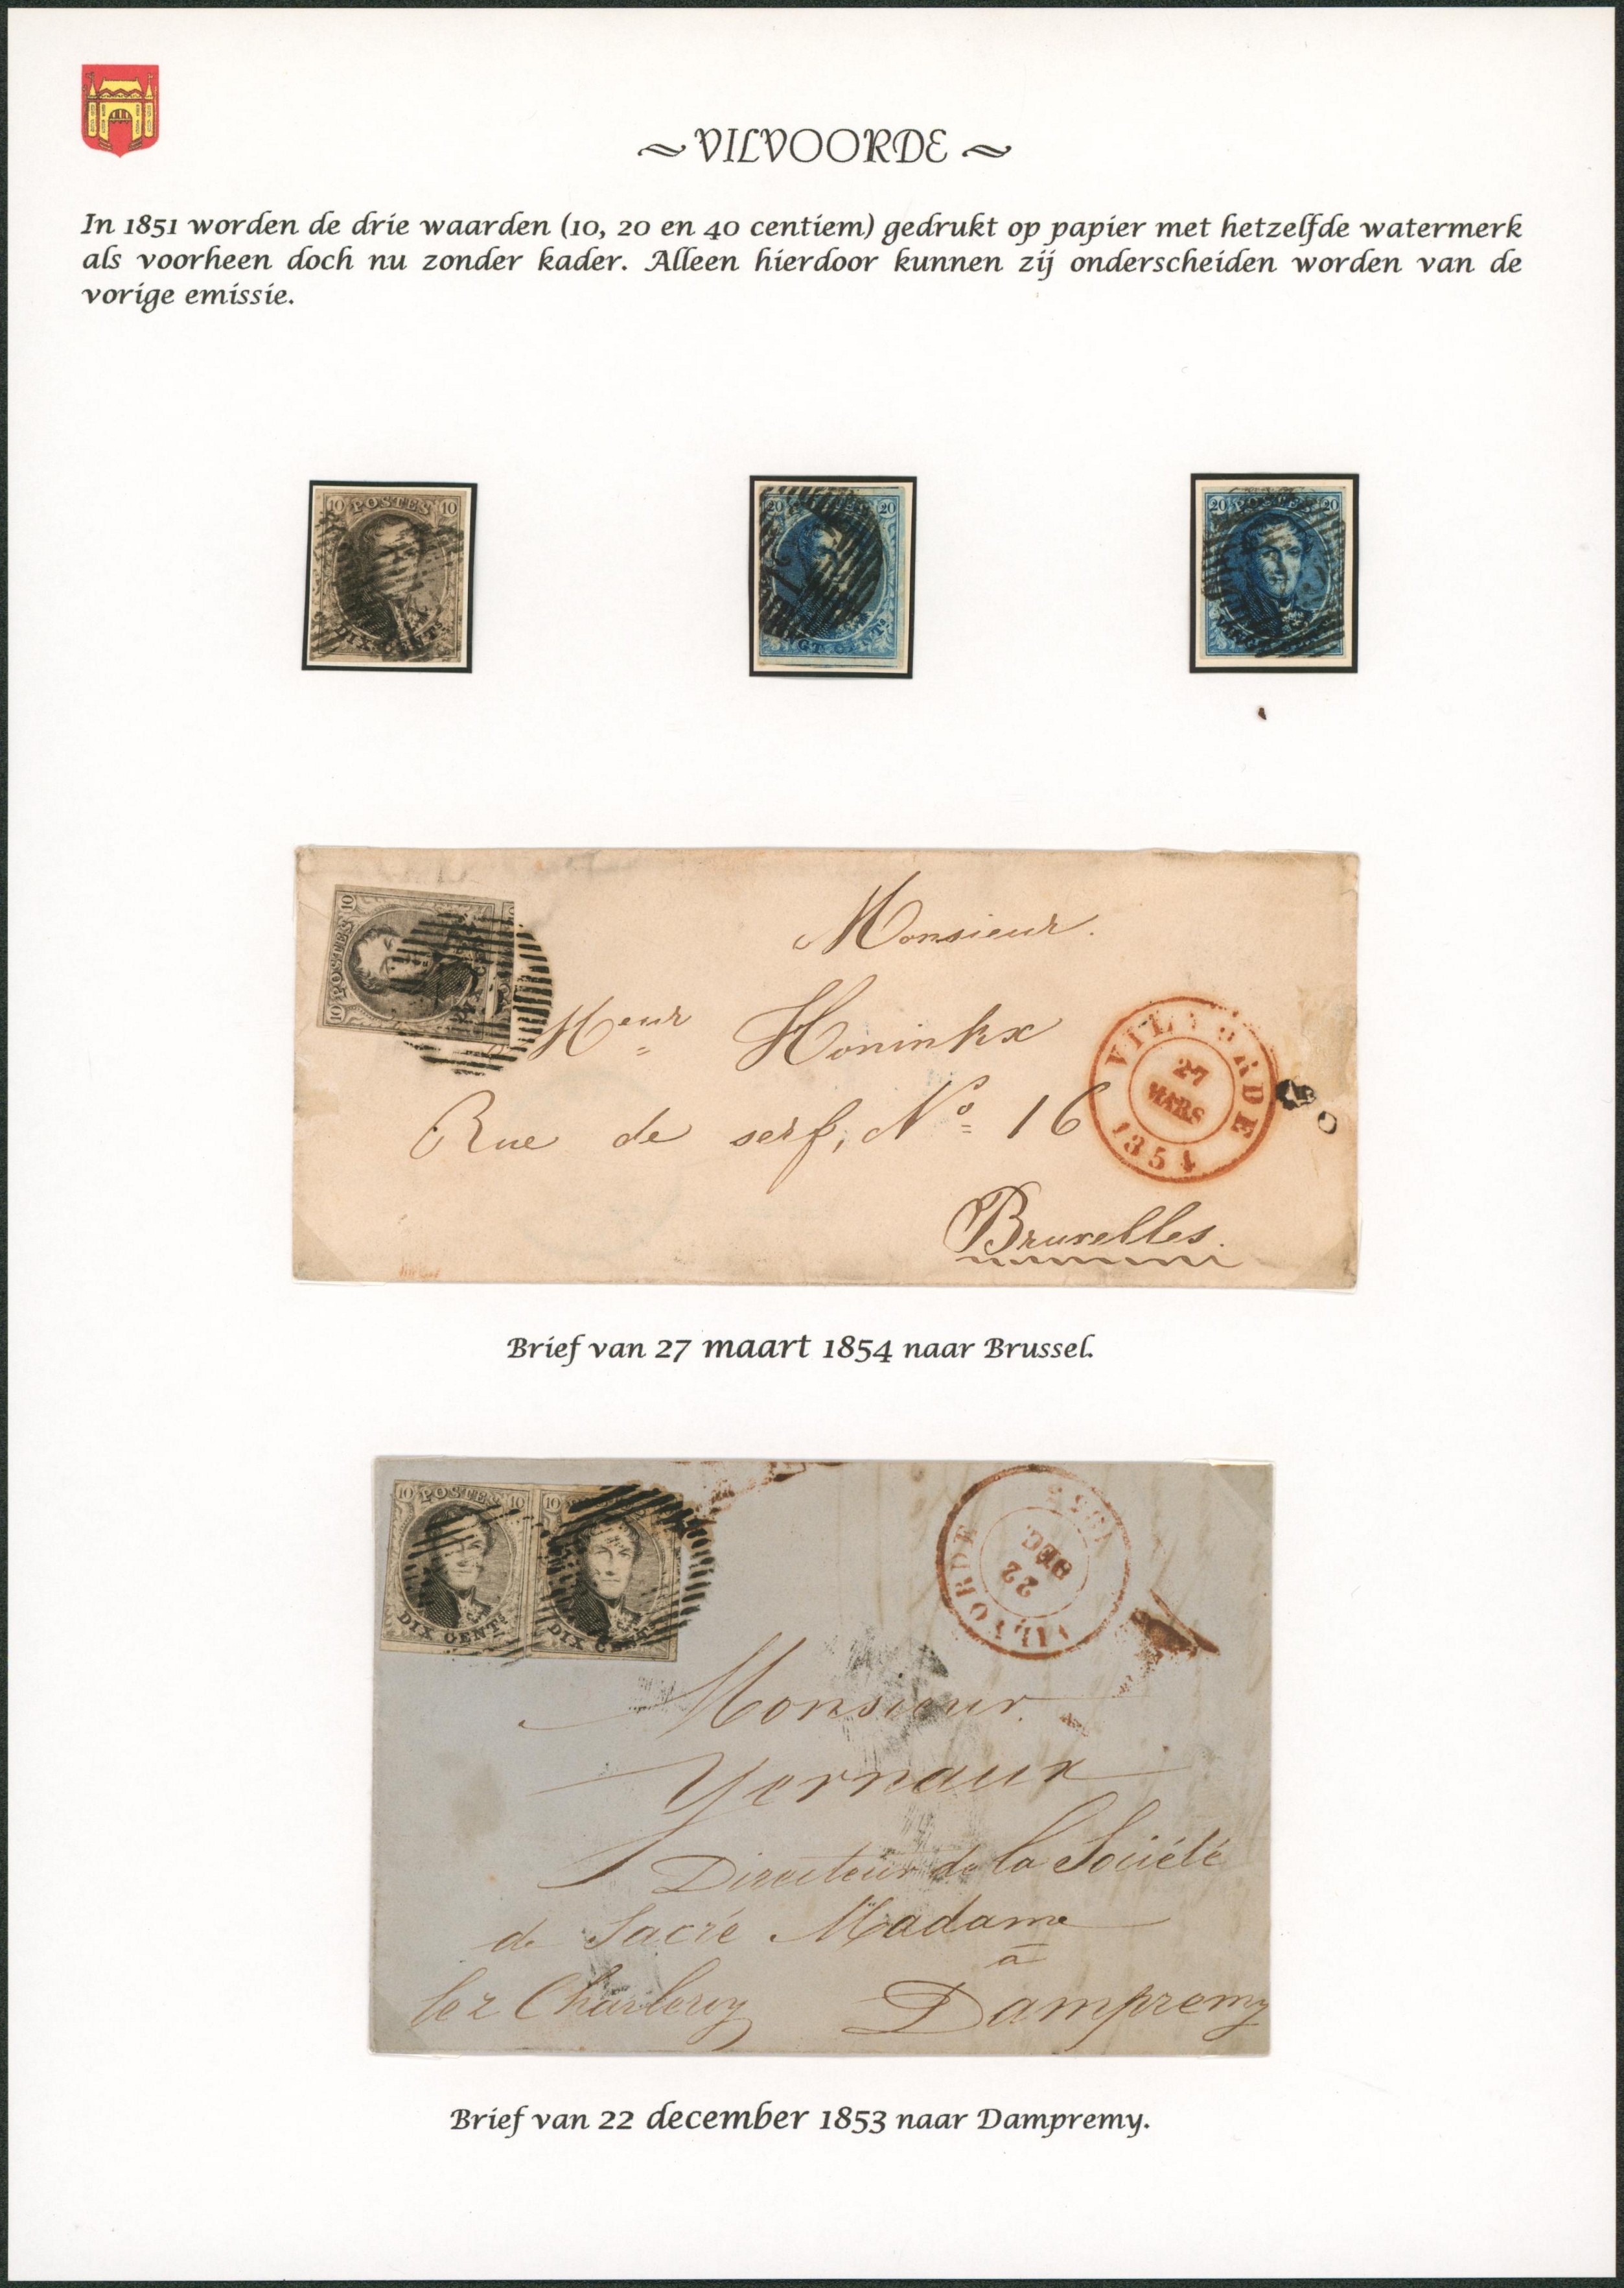 ~ VILVOORDE ~
In 1851 worden de drie waarden (10, 20 en 40 centiem) gedrukt op papier met hetzelfde watermerk
als voorheen doch nu zonder kader. Alleen hierdoor kunnen zij onderscheiden worden van de
vorige emissie.
10 POSTES 10
DIX CENTS
20 20
GT CENTS
20 POSTES 20
10 POSTES 10
Monsieur.
Meur Honinkx
Rue de serf, No 16
Bruxelles.
27
MARS
1854
Brief van 27 maart 1854 naar Brussel.
10 POSTES 10
DIX CENTS
10
DIX CENTS
22
DEC.
Monsieur.
Yernaux
Directeur de la Société
de Sacré Madame
à
lez Charleroy Dampremy
Brief van 22 december 1853 naar Dampremy.